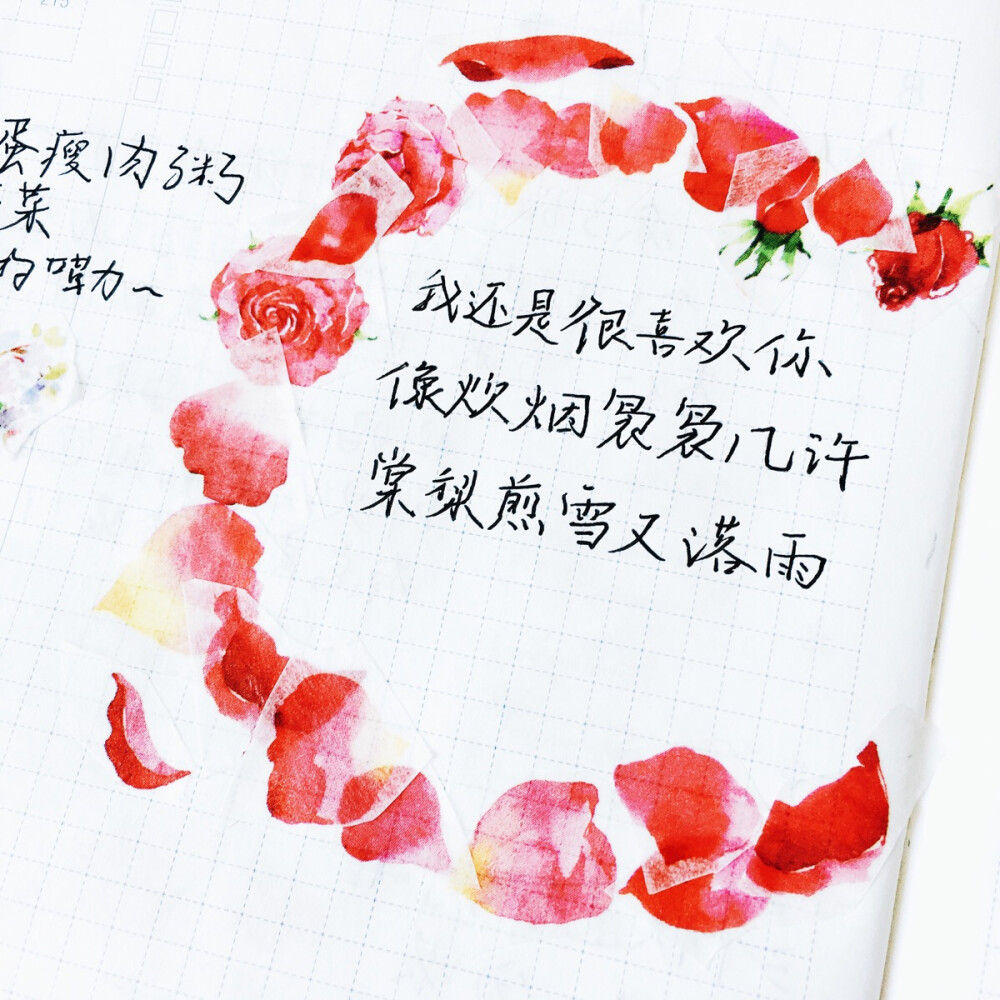 蛋瘦肉粥
菜
我还是很喜欢你
像炊烟袅袅几许
棠梨煎雪又落雨